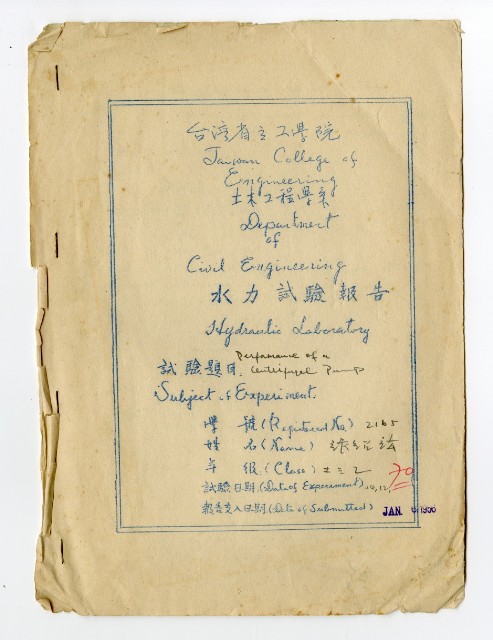 台湾省立工學院
Taiwan College of
Engineering
土木工程學系
Department
of
Civil Engineering
水力試驗報告
Hydraulic Laboratory
試驗題目 Performance of a Centrifugal Pump
Subject of Experiment.
學號(Registered No.) 2165
姓名(Name)
年級(Class) 土三乙
70
試驗日期(Date of Experiment)
報告交入日期(Date of Submitted) JAN. 6 1956